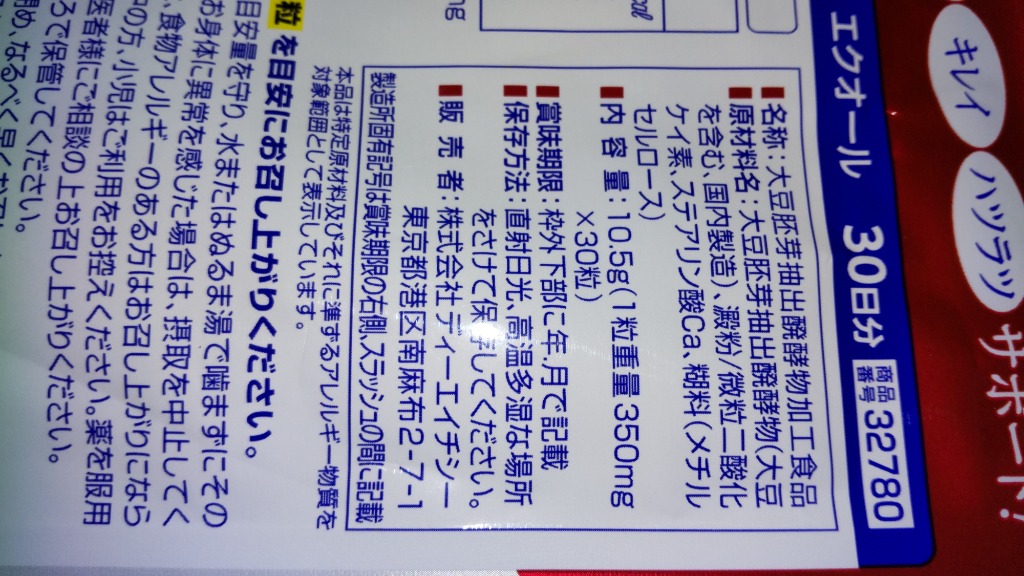 キレイ
ハツラツ
サポート!
エクオール 30日分 商品番号 32780
■名称:大豆胚芽抽出醗酵物加工食品
■原材料名:大豆胚芽抽出醗酵物(大豆
を含む、国内製造)、澱粉/微粒二酸化
ケイ素、ステアリン酸Ca、糊料(メチル
セルロース)
■内容量:10.5g(1粒重量350mg
×30粒)
■賞味期限:枠外下部に年.月で記載
■保存方法:直射日光、高温多湿な場所
をさけて保存してください。
■販売者:株式会社ディーエイチシー
東京都港区南麻布2-7-1
製造所固有記号は賞味期限の右側、スラッシュの間に記載
本品は特定原材料及びそれに準ずるアレルギー物質を
対象範囲として表示しています。
粒を目安にお召し上がりください。
目安量を守り、水またはぬるま湯で噛まずにその
お身体に異常を感じた場合は、摂取を中止してく
食物アレルギーのある方はお召し上がりになら
中の方、小児はご利用をお控えください。薬を服用
医者様にご相談の上お召し上がりください。
ろで保管してください。
閉め、なるべく早く